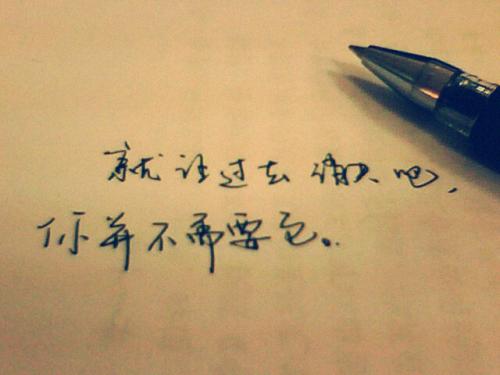 就让过去消失吧，
你并不需要它。